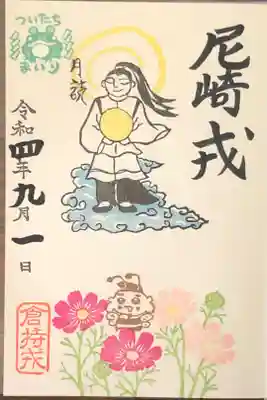 尼崎戎
ついたち
まいり
月詠
令和四年九月一日
倉持戎